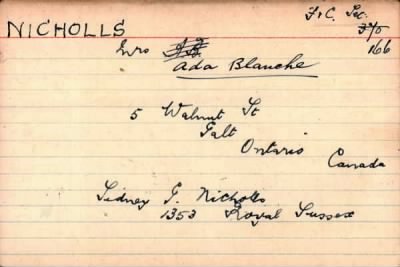 NICHOLLS
F & C. Sec.
3/5
166
Mrs
Ada Blanche
5 Walnut St
Galt
Ontario
Canada
Sidney G. Nicholls
1353 Royal Sussex